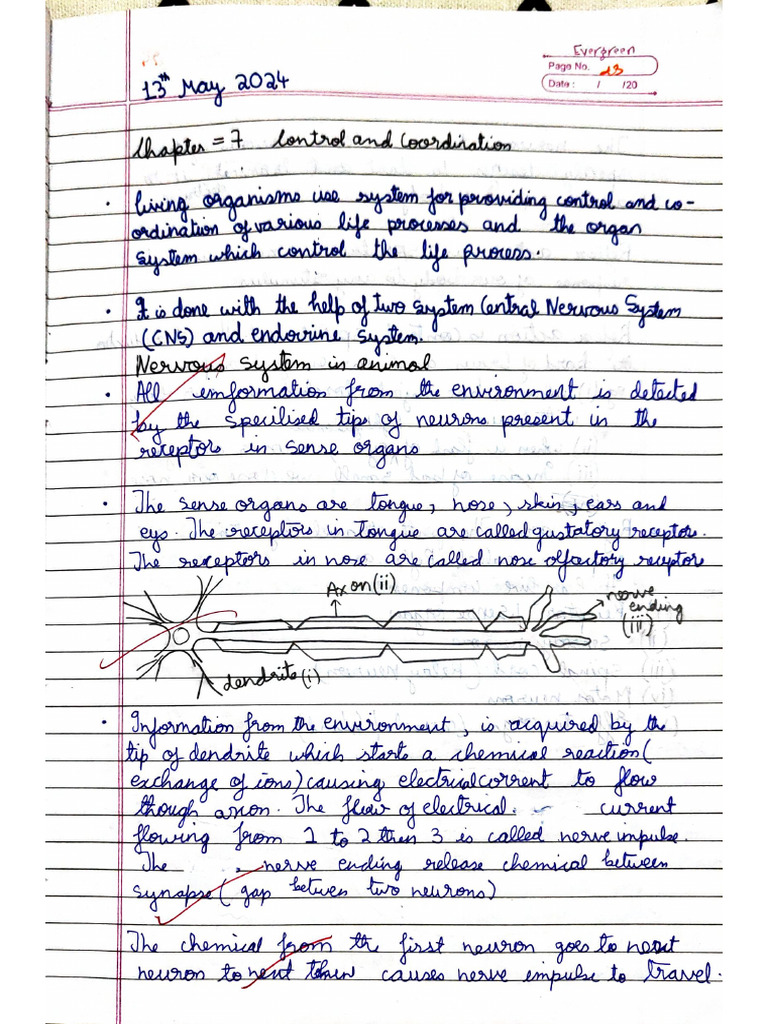 Evergreen
Page No. 23
Date : / /20
13th May 2024
Chapter = 7 Control and Coordination
• living organisms use system for providing control and co-
ordination of various life processes and the organ
system which control the life process.
• It is done with the help of two system Central Nervous System
(CNS) and endocrine system.
Nervous system in animal
• All imformation from the environment is detected
by the specilised tips of neurons present in the
receptors in sense organs
• The sense organs are tongue, nose, skin, ears and
eys. The receptors in tongue are called gustatory receptor.
The receptors in nose are called nose olfactory receptor
Axon (ii)
nerve
ending
(iii)
dendrite (i)
• Information from the environment, is acquired by the
tip of dendrite which starts a chemical reaction (
exchange of ions) causing electrical current to flow
though axon. The flow of electrical. current
flowing from 1 to 2 then 3 is called nerve impulse.
The , nerve ending release chemical between
synapse ( gap betwen two neurons)
The chemical from the first neuron goes to next
neuron to next then causes nerve impulse to travel.